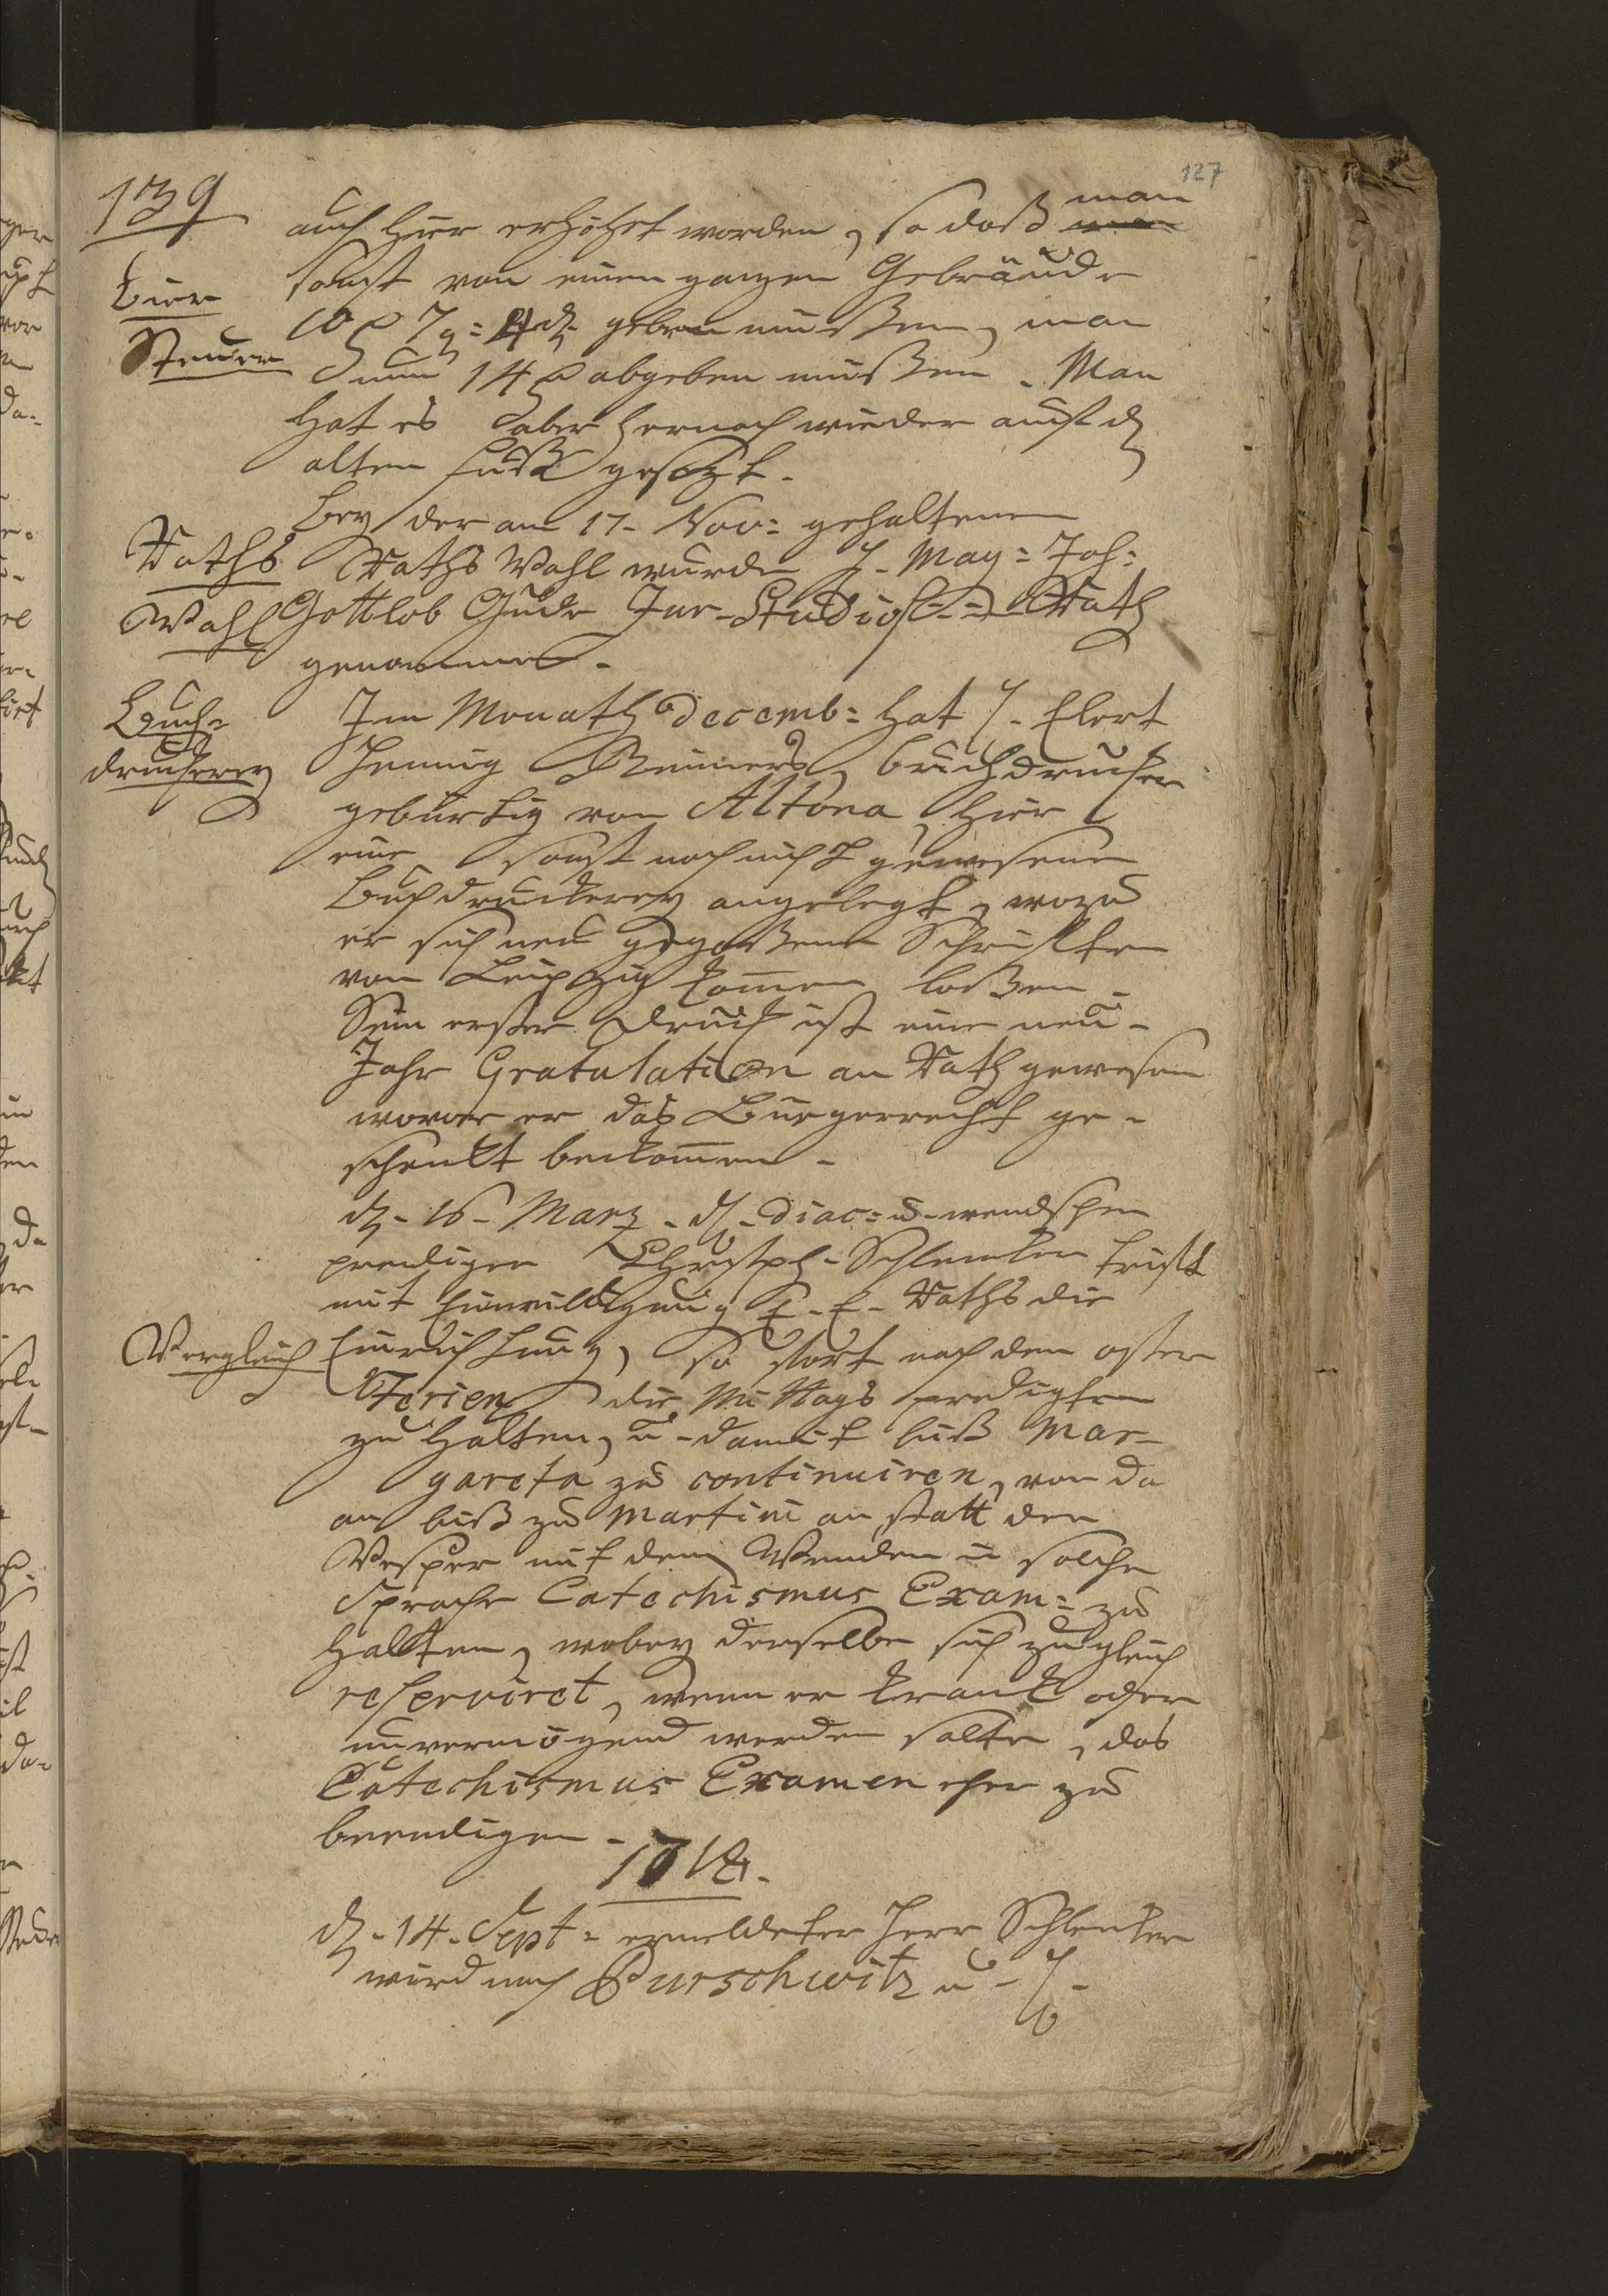 127
139
auch hier erhöhet worden, so daß man
Bier
sonst von einen ganzen Gebräude
10 7 g: 4 d. geben mußen, man
Steuer
nun 14 abgeben mußen. Man
hat es aber hernach wieder auf d
alten Fuß gesezt.
Bey der am 17. Nov: gehaltenen
Raths
Raths Wahl wurde H. Mag: Joh:
Wahl
Gottlob Gude Jur. Studios. Rath
genommen.
Buch=
Im Monath decemb: hat H. Elert
druckerey
Hennig Reimers, buchdrucker
gebürtig von Altona, hier
eine sonst noch nicht gewesene
Buchdruckerey angelegt, wozu
er sich neu gegoßene Schrifften
von Leipzig komen laßen.
Sein erster Druck ist eine neu-
Jahr Gratulation an Rath gewesen
wovor er das Bürgerrecht ge-
schenkt bekomen.
d. 16. Marz. H. Diac: u. wendschen
prediger Christph. Schlenker trifft
mit Einwilligung E. E. Raths die
Vergleich
Einrichtung, so fort nach den oster
Ferien die Mittags predigten
zu halten, u. damit biß Mar-
gareta zu continuiren, von da
an biß zu Martini an statt der
Vesper mit den Wenden in solcher
Sprache Catechismus Exam: zu
halten, wobey derselbe sich zugleich
reserviret, wenn er krank oder
unvermögend werden solte, das
Catechismus Examen eher zu
beendigen.
d. 14. Sept: ermeldeter Herr Schlenker
wird nach Purschwitz u. H.